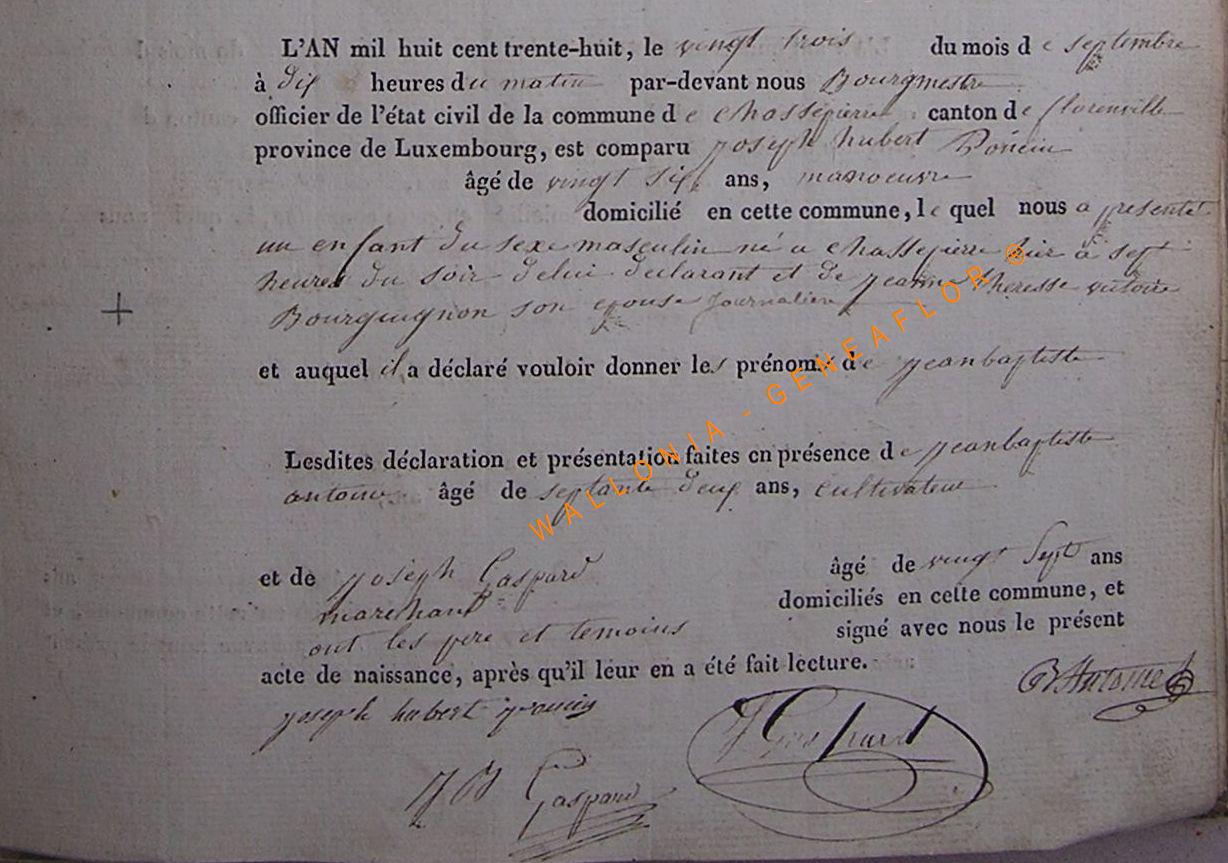 L'AN mil huit cent trente-huit, le vingt trois du mois de septembre
à dix heures du matin par-devant nous Bourgmestre
officier de l'état civil de la commune de chassepierre canton de florenville
province de Luxembourg, est comparu joseph hubert Poncin
âgé de vingt six ans, manoeuvre
domicilié en cette commune, le quel nous a presenté
un enfant du sexe masculin né a chassepierre hier à sept
heures du soir de lui declarant et de jeanne theresse victoire
Bourguignon son epouse journaliere
et auquel il a déclaré vouloir donner les prénoms de jeanbaptiste
Lesdites déclaration et présentation faites en présence de jeanbaptiste
antoine âgé de septante deux ans, cultivateur
et de joseph Gaspard âgé de vingt sept ans
marechant domiciliés en cette commune, et
ont les pere et temoins signé avec nous le présent
acte de naissance, après qu'il leur en a été fait lecture.
joseph hubert poncin
J Gaspard
JB Antoine
JB Gaspard
WALLONIA - GENEAFLOR ®